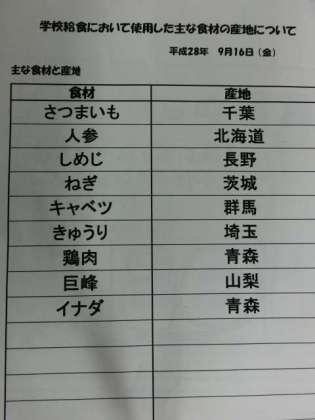 学校給食において使用した主な食材の産地について
平成28年 9月16日（金）
主な食材と産地
食材 産地
さつまいも 千葉
人参 北海道
しめじ 長野
ねぎ 茨城
キャベツ 群馬
きゅうり 埼玉
鶏肉 青森
巨峰 山梨
イナダ 青森